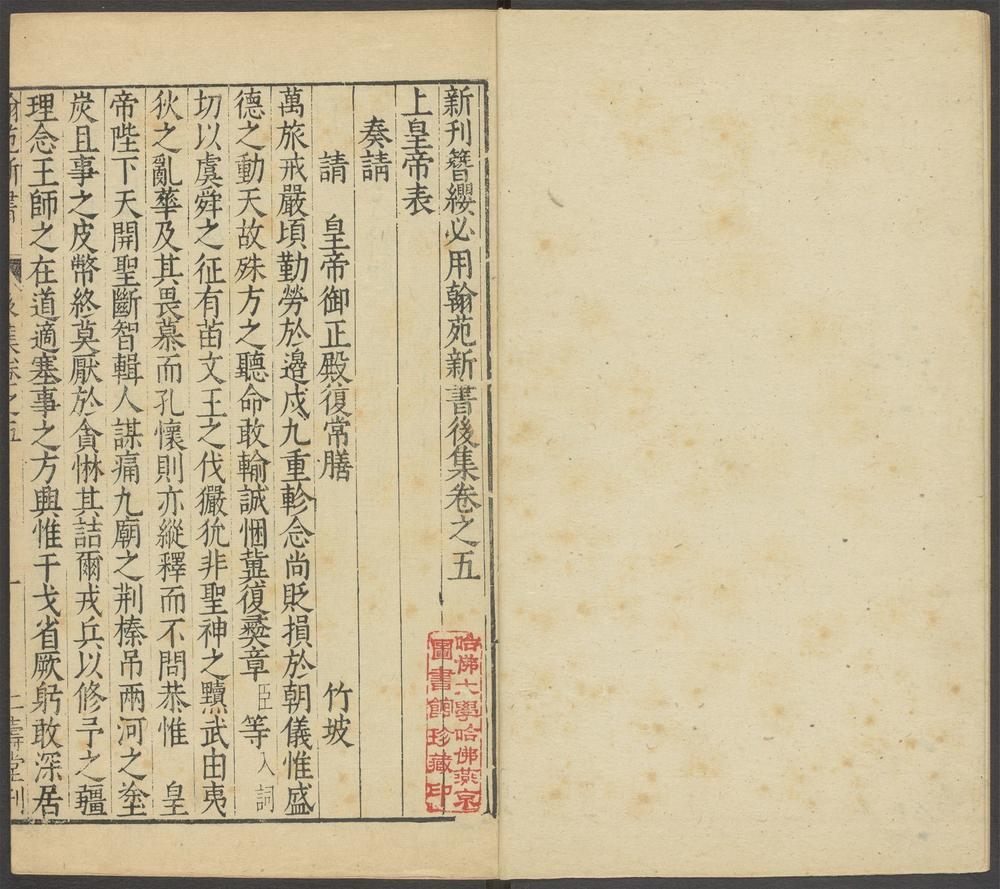 新刊簪纓必用翰苑新書後集卷之五
上皇帝表
奏請
請 皇帝御正殿復常膳 竹坡
萬旅戒嚴頃勤勞於邉戍九重軫念尚貶損於朝儀惟盛
德之動天故殊方之聽命敢輸誠悃冀復彞章臣等入詞
切以虞舜之征有苗文王之伐玁狁非聖神之黷武由夷
狄之亂華及其畏慕而孔懷則亦縱釋而不問恭惟 皇
帝陛下天開聖斷智輯人謀痛九廟之荆榛吊兩河之塗
炭且事之皮幣終莫厭於貪惏其詰爾戎兵以修予之疆
理念王師之在道適塞事之方興惟干戈省厥躬敢深居
翰苑新書 後集卷之五 一 仁壽堂刊
哈佛大學哈佛燕京
圖書館珍藏印